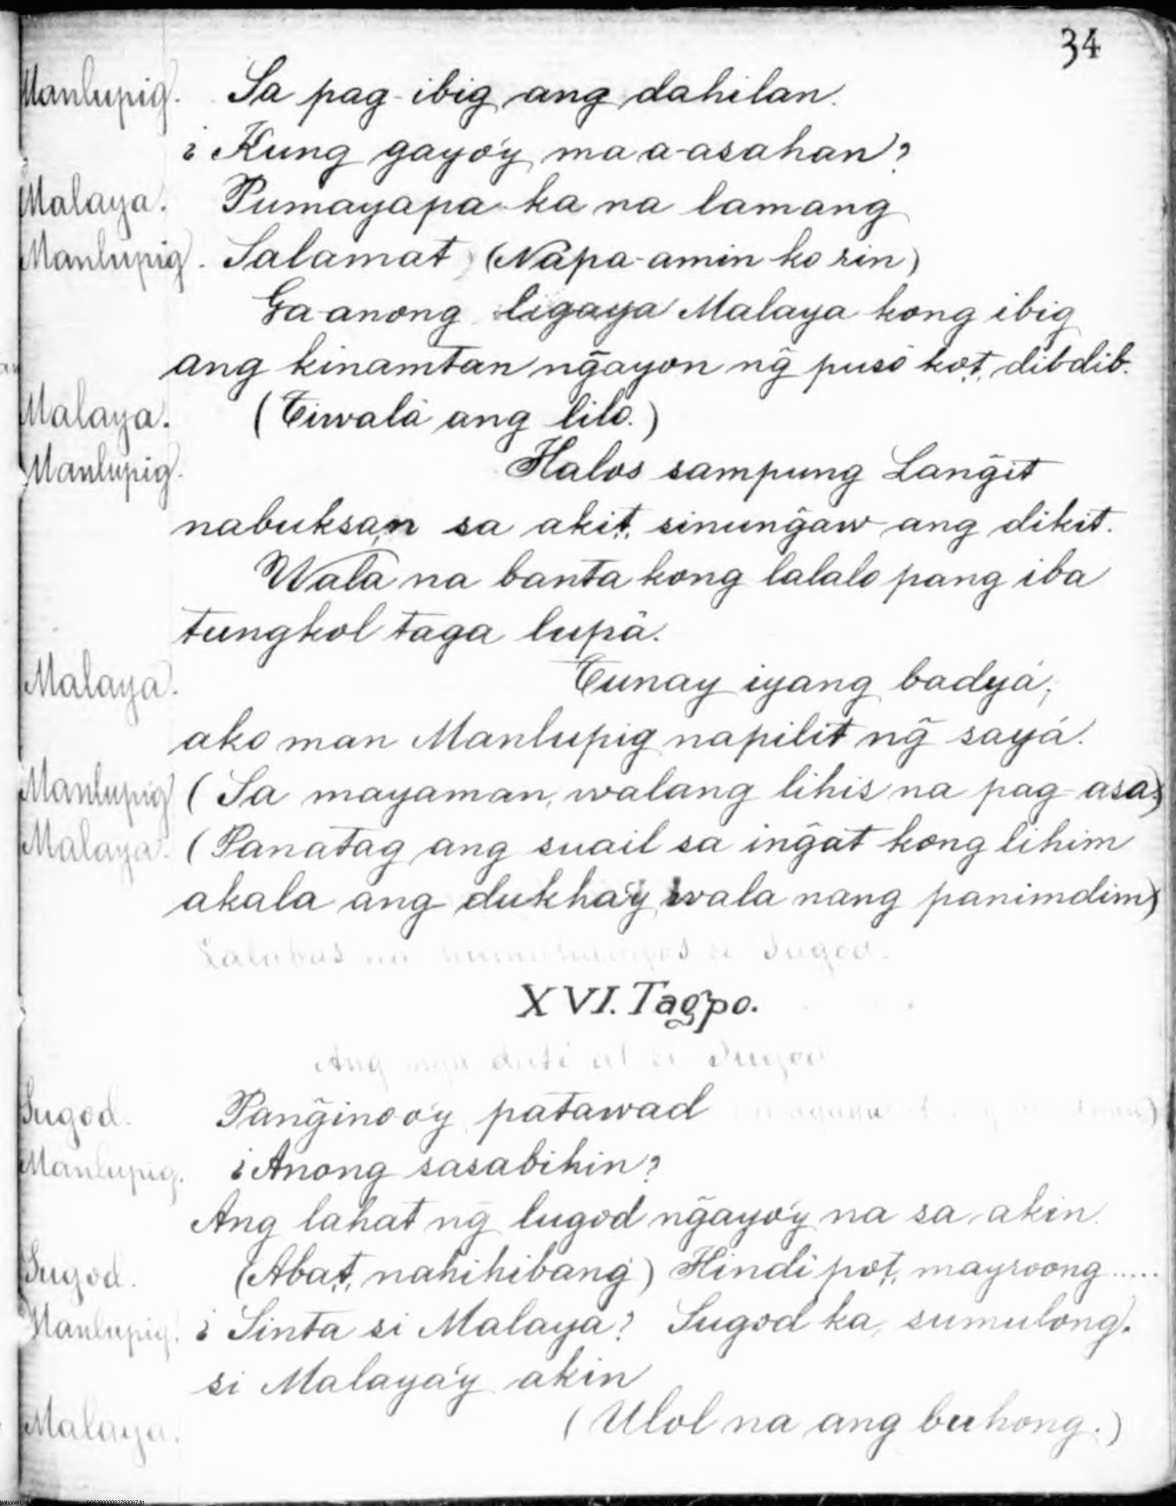 34
Manlupig. Sa pag-ibig ang dahilan.
¿ Kung gayo'y maa-asahan?
Malaya. Pumayapa ka na lamang
Manlupig. Salamat (Napa-amin ko rin)
Ga-anong ligaya Malaya kong ibig
ang kinamtan ngayon ng̃ pusò ko't, dibdib.
Malaya. (Tiwalà ang lilo.)
Manlupig. Halos sampung Lang̃it
nabuksan sa aki't, sinung̃aw ang dikit.
Walâ na banta kong lalalo pang iba
tungkol taga lupâ.
Malaya. Tunay iyang badyá;
ako man Manlupig napilit ng̃ sayá.
Manlupig (Sa mayaman, walang lihis na pag-asa)
Malaya. (Panatag ang suail sa ing̃at kong lihim
akala ang dukha'y wala nang panimdim)
Lalabas na si Sugod.
XVI. Tagpo.
Ang mga dati at si Sugod
Sugod. Pang̃inoo'y patawad
Manlupig. ¿Anong sasabihin?
Ang lahat ng̃ lugod ng̃ayo'y na sa akin.
Sugod. (Aba't, nahihibang) Hindi po't, mayroong.....
Manlupig. ¿ Sinta si Malaya? Sugod ka, sumulong.
si Malaya'y akin
Malaya. (Ulol na ang buhong.)